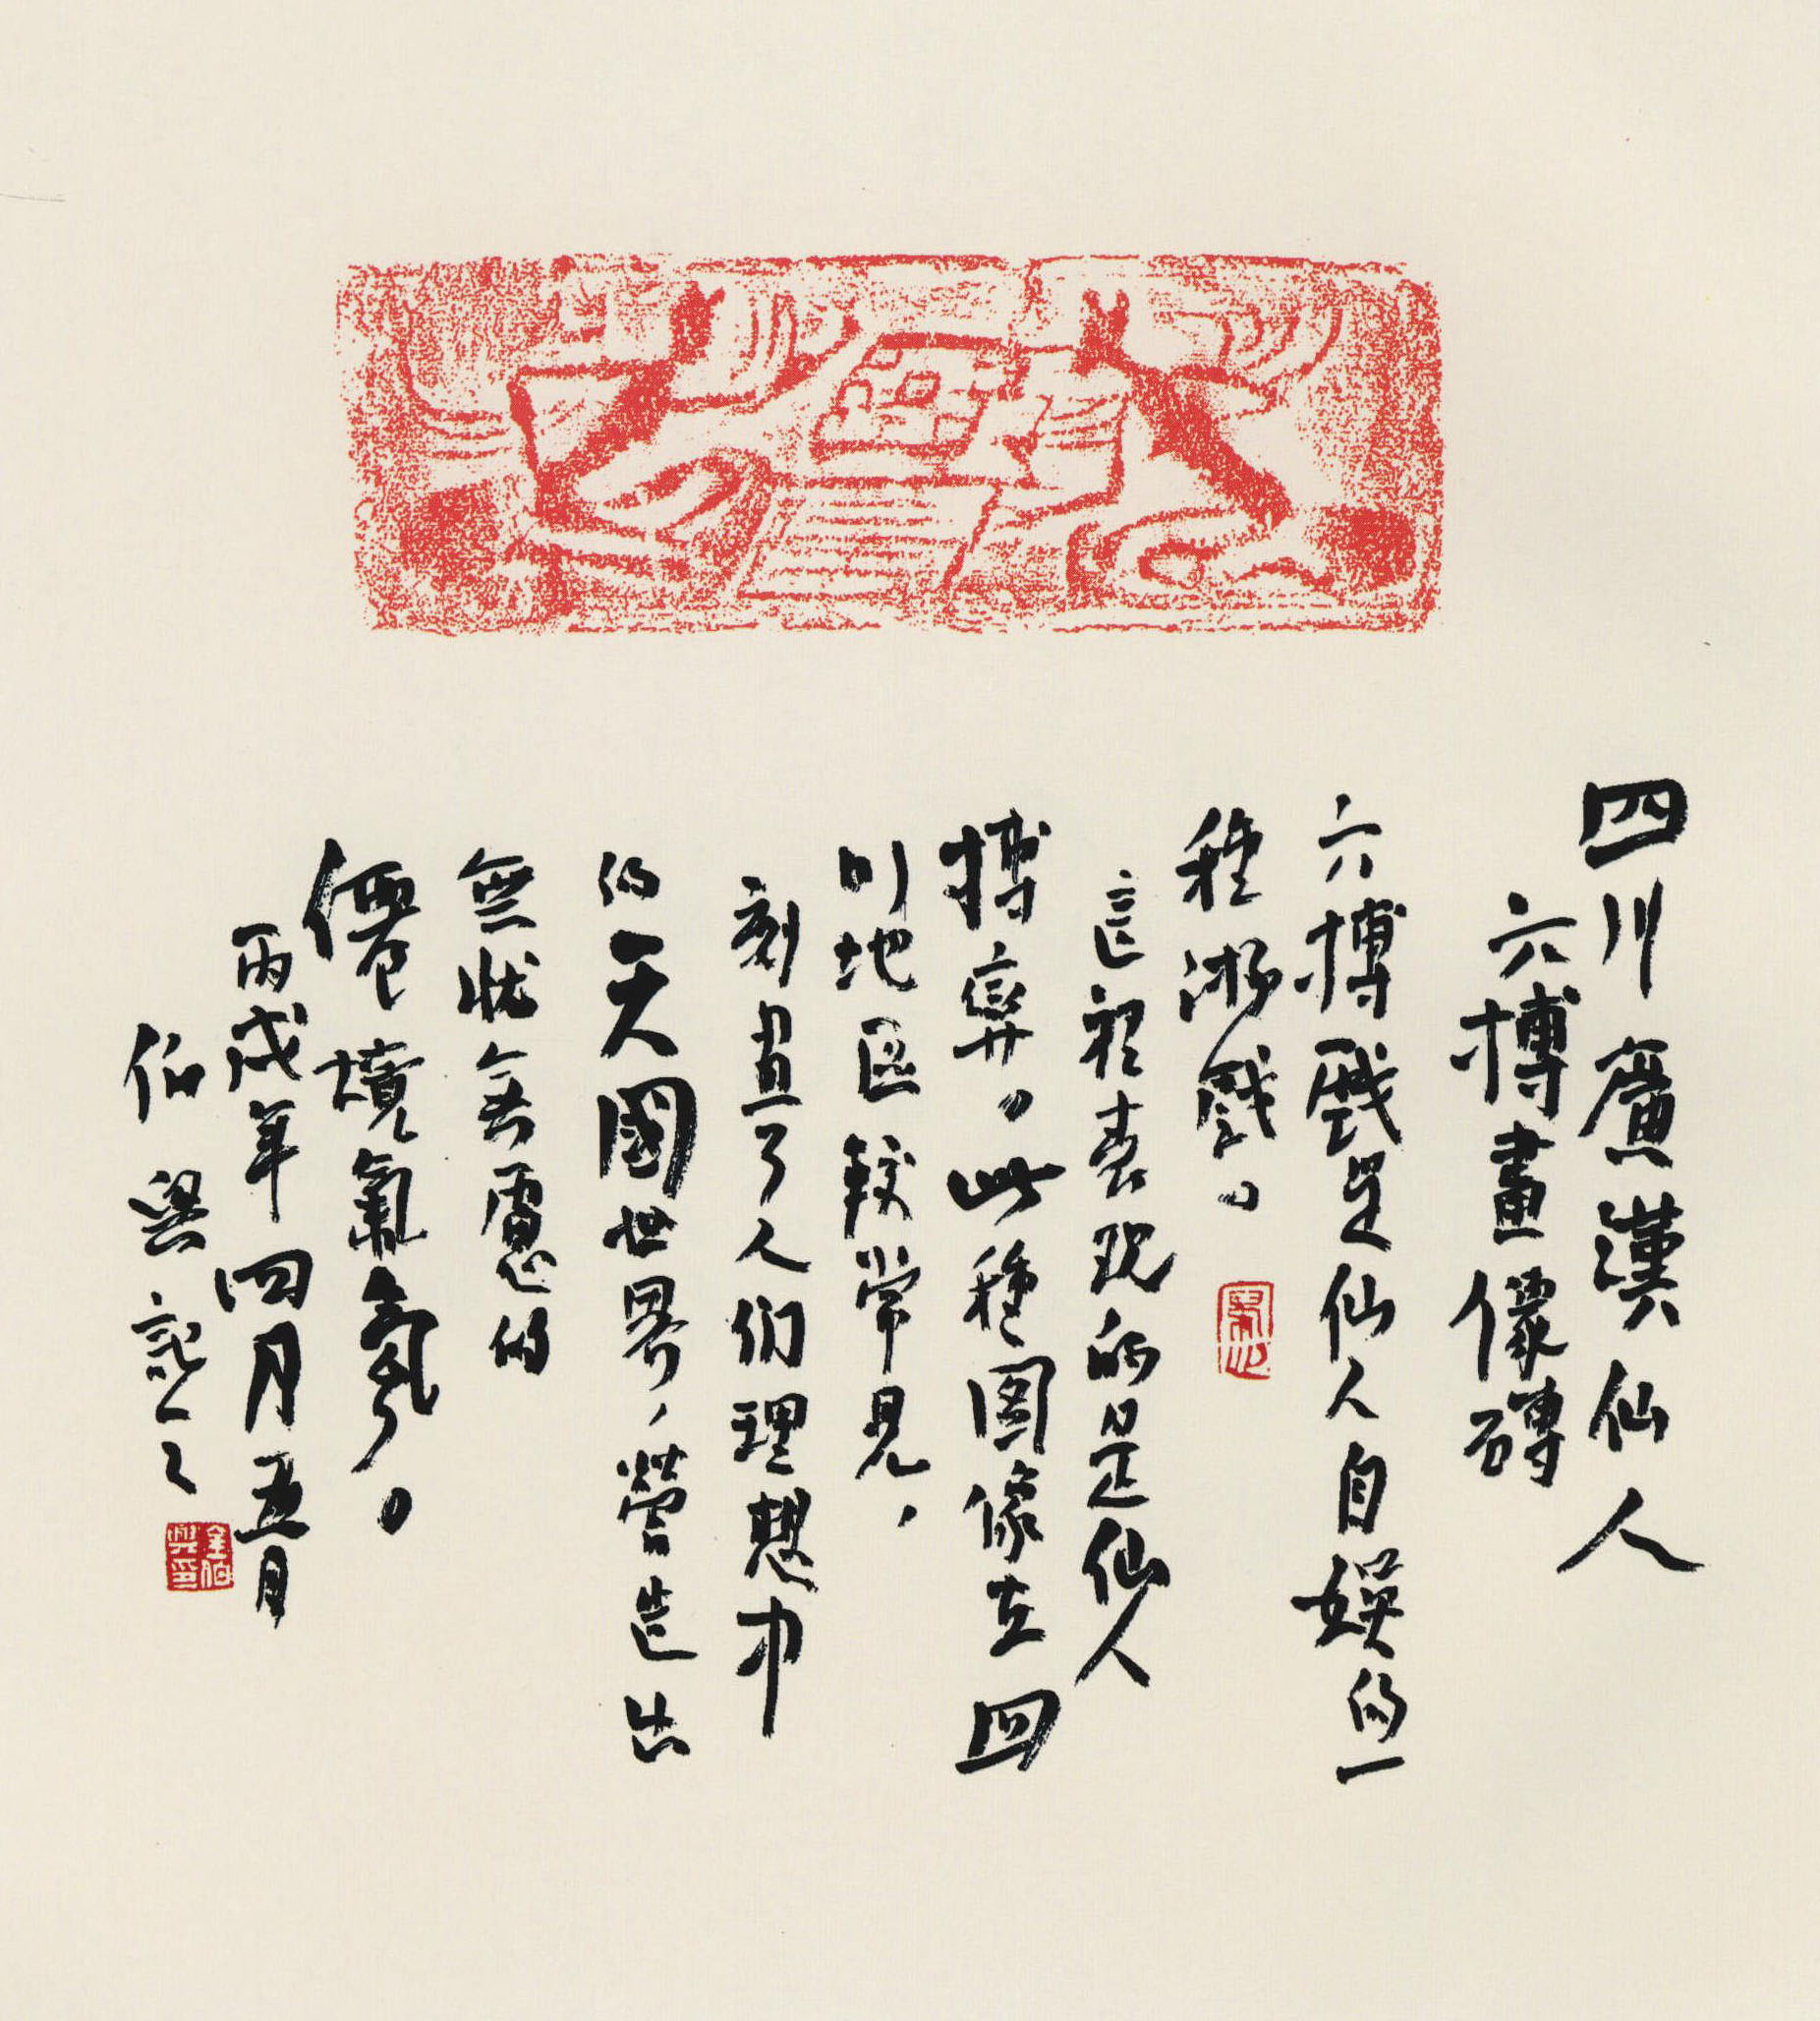 四川廣漢仙人
六博畫像磚
六博戲是仙人自娱的一
種游戲。
這裡表現的是仙人
博弈。此種图像在四
川地区較常見，
刻畫了人们理想中
的天國世界，營造出
無忧無慮的
僊境氣氛。
丙戌年四月五日
伯興記之